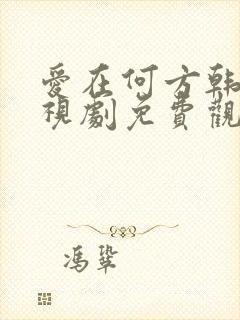 愛在何方韓
視劇免費觀
馮鞏